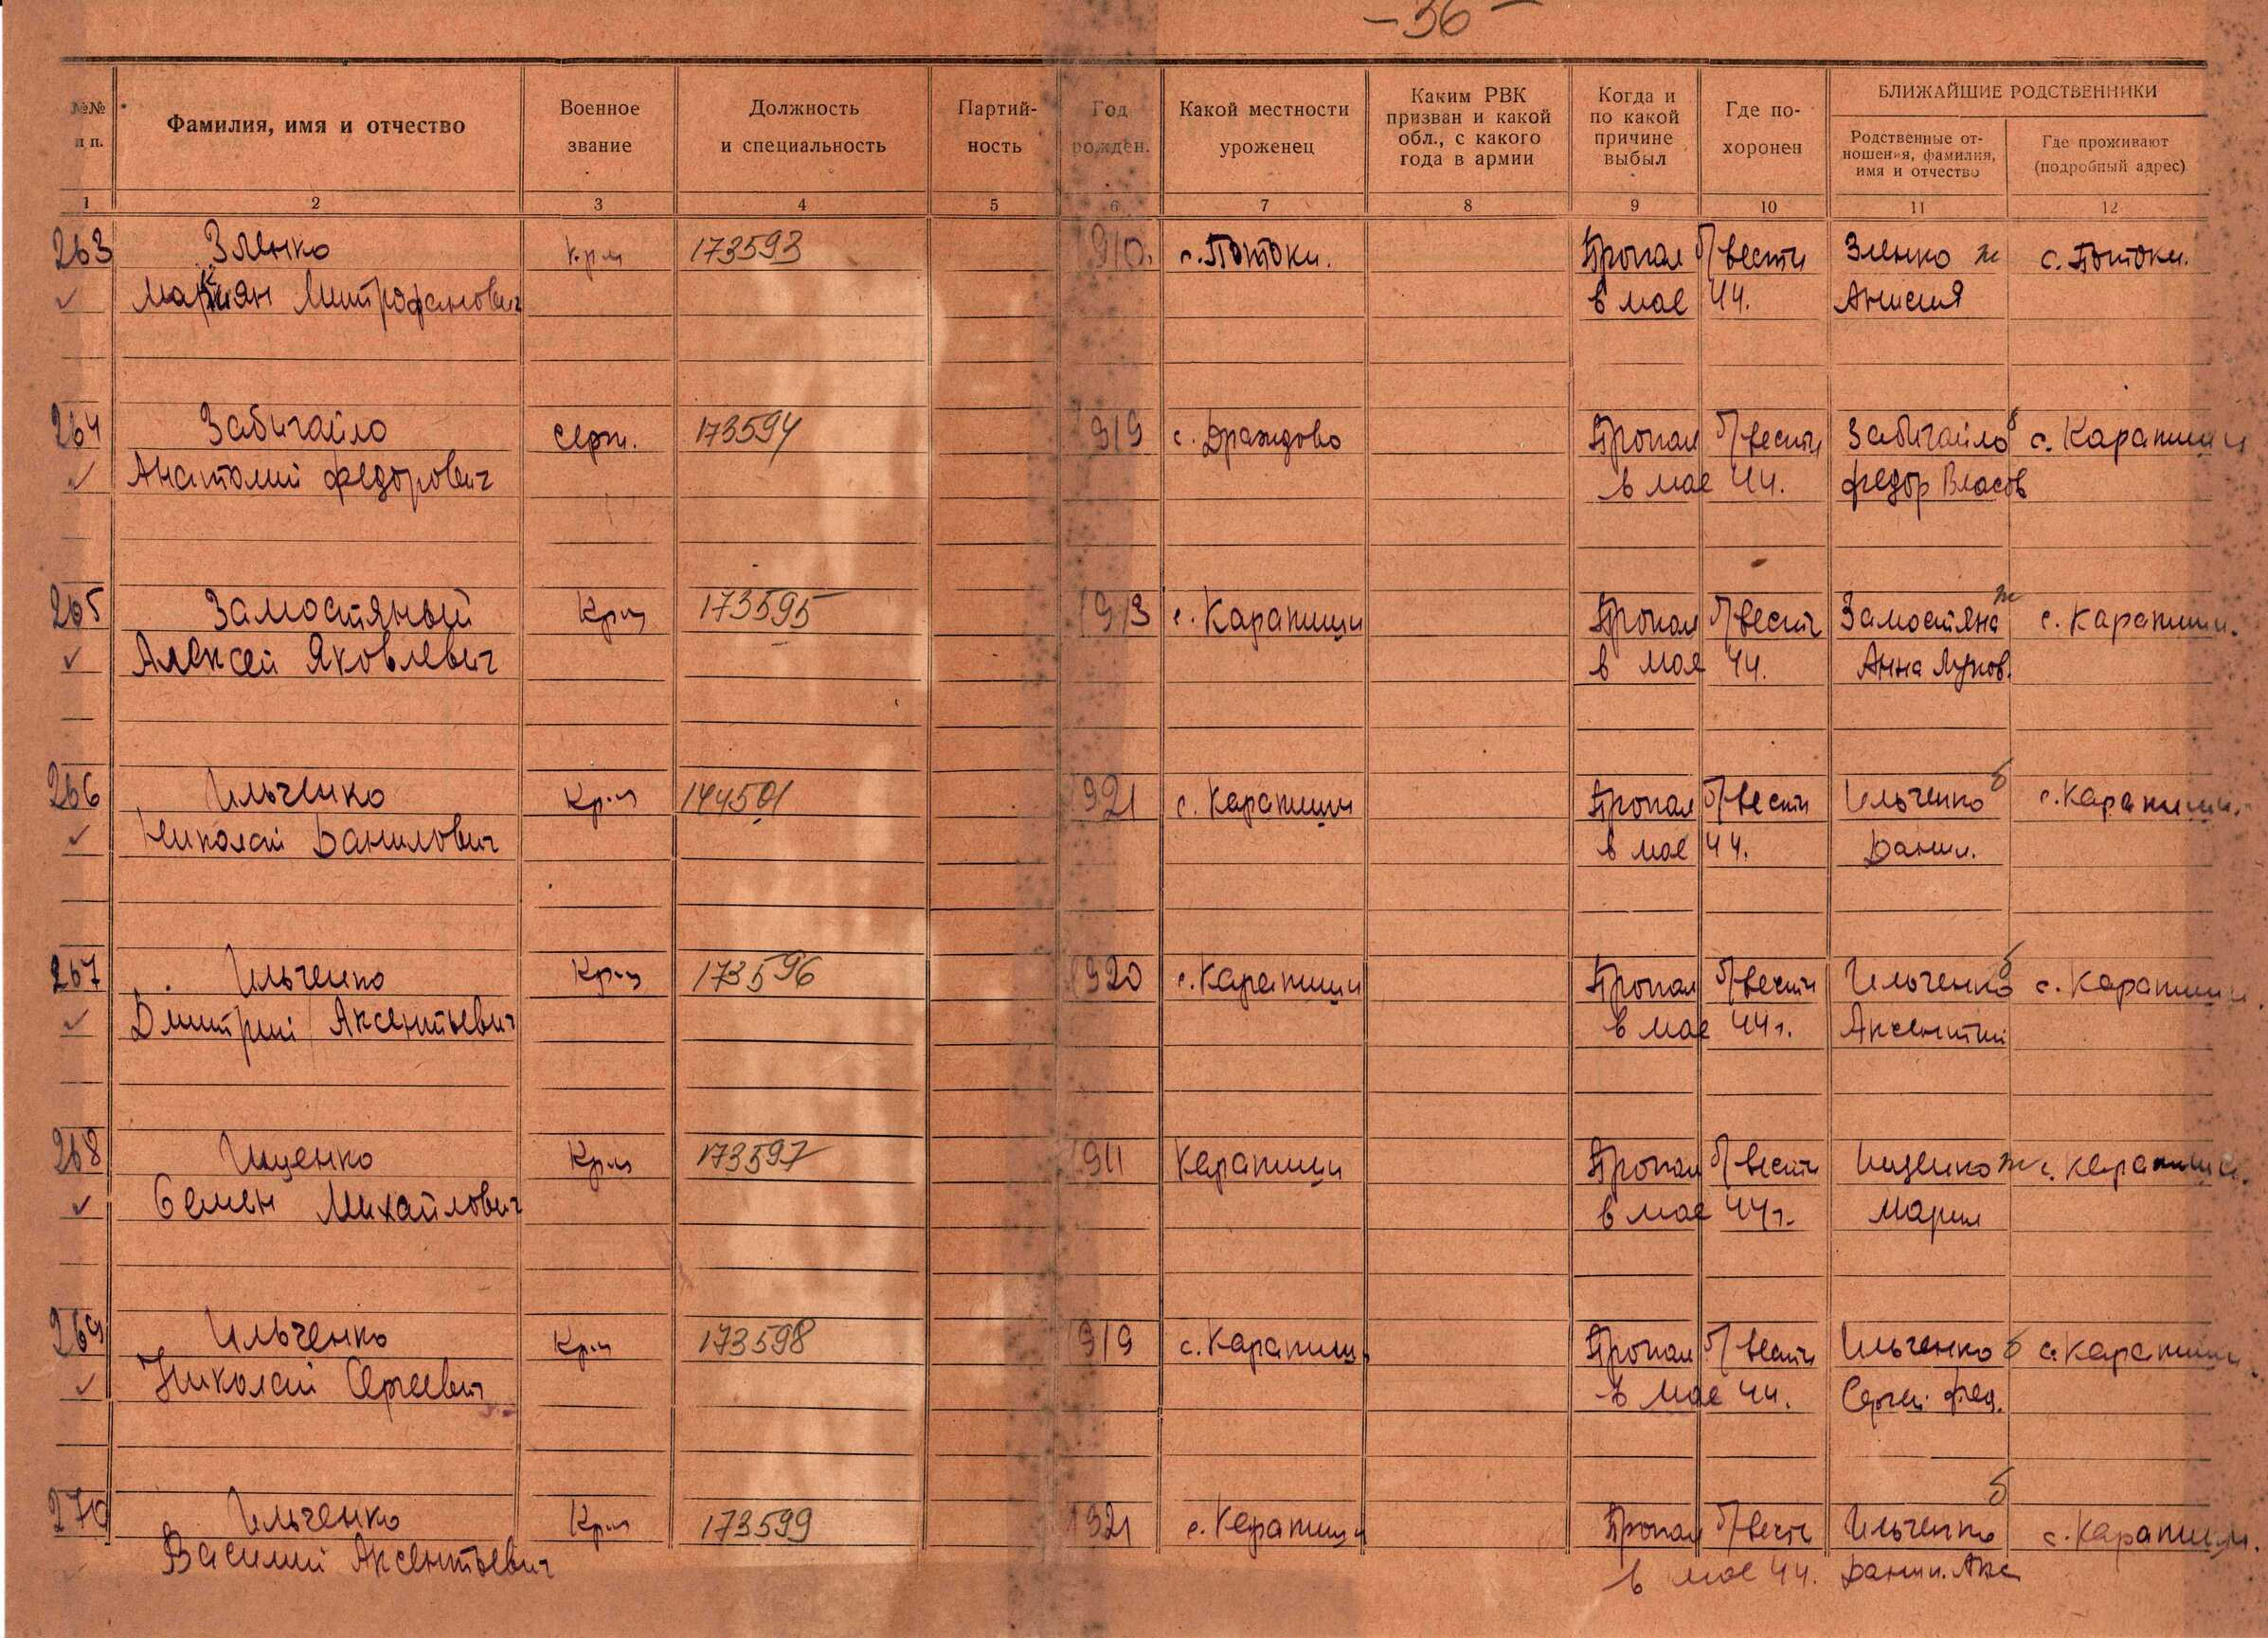 – 36 –
№№ п п.
Фамилия, имя и отчество
Военное звание
Должность и специальность
Партий- ность
Год рожден.
Какой местности уроженец
Каким РВК призван и какой обл., с какого года в армии
Когда и по какой причине выбыл
Где по- хоронен
БЛИЖАЙШИЕ РОДСТВЕННИКИ
Родственные от- ношения, фамилия, имя и отчество
Где проживают (подробный адрес)
1 2 3 4 5 6 7 8 9 10 11 12
263 Зленко крц 173593 1910. с. Потоки. Пропал б/вести Зленко ж с. Потоки.
Митрофанович в мае 44. Анисия
264 Забигайло серж. 173594 1919 с. Драждово Пропал б/вести Забигайло с. Карапиши
Анатолий Федорович в мае 44. Федор Власов
265 Замостяный Крц 173595 1913 с. Карапиши Пропал б/вести Замостяна ж с. Карапиши.
Алексей Яковлевич в мае 44. Анна Луков.
266 Ильченко Крц 144501 1921 с. Карапиши Пропал б/вести Ильченко б с. Карапиши.
Николай Данилович в мае 44. Данил.
267 Ильченко Крц 173596 1920 с. Карапиши Пропал б/вести Ильченко б с. Карапиши.
Дмитрий Аксентьевич в мае 44г. Аксентий
268 Ищенко Крц 173597 1911 Карапиши Пропал б/вести Ищенко ж с. Карапиши.
Семен Михайлович в мае 44г. Мария
269 Ильченко Крц 173598 1919 с. Карапиши Пропал б/вести Ильченко б с. Карапиши.
Николай Сергеевич в мае 44. Сергей Фед.
270 Ильченко Крц 173599 1921 с. Карапиши Пропал б/вести Ильченко б с. Карапиши.
Василий Аксентьевич в мае 44. Данил. Акс